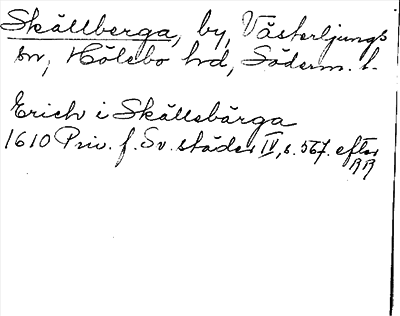 Skällberga, by, Västerljungs
sn, Hölebo hd, Söderm. l.
Erich i Skällsbärga
1610 Priv. f. Sv. städer IV, s. 567. efter
RR